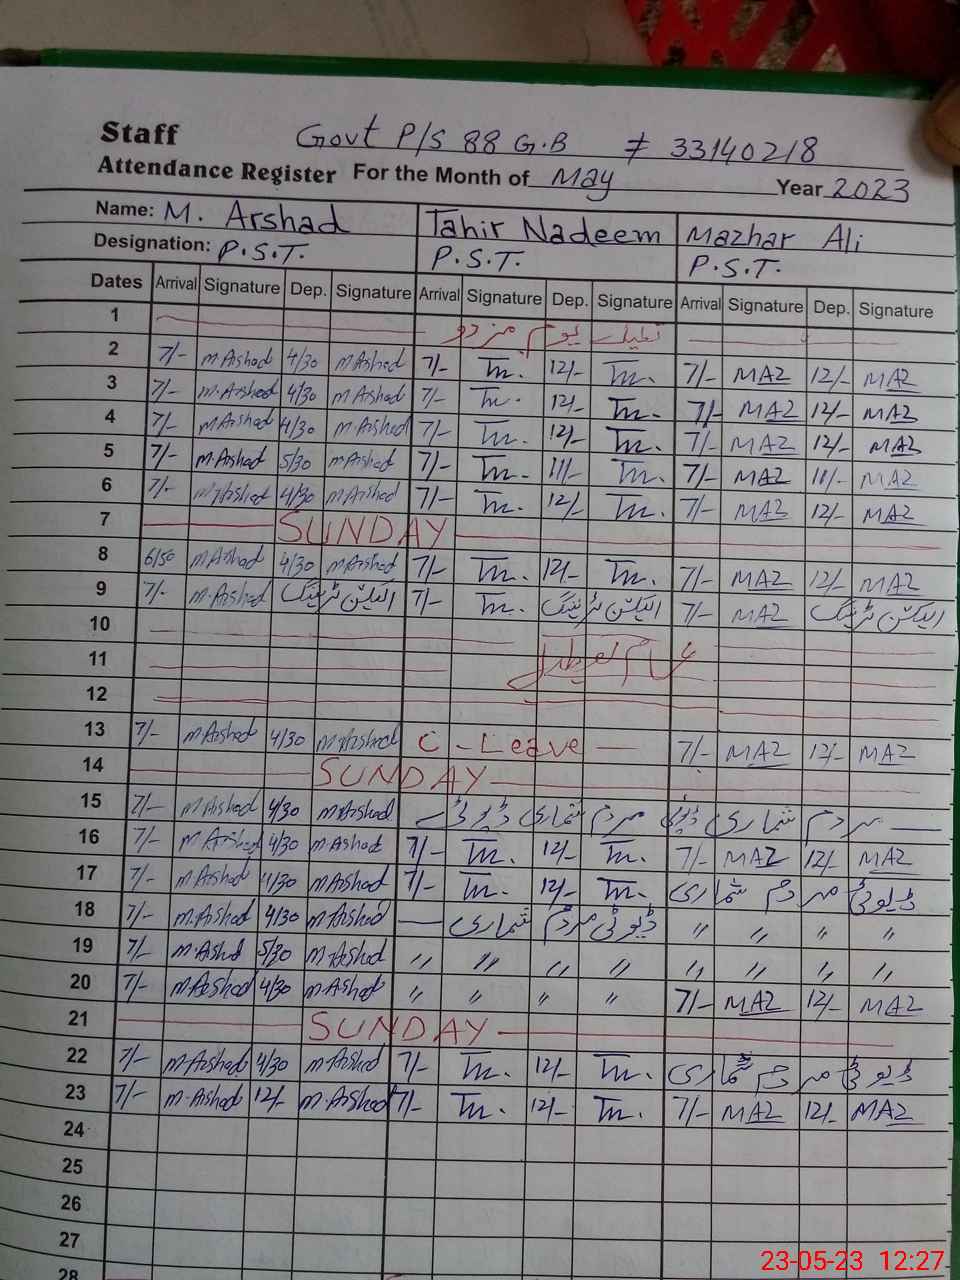 Staff Govt P/S 88 G.B # 33140218
Attendance Register For the Month of May Year 2023
Name: M. Arshad Tahir Nadeem Mazhar Ali
Designation: P.S.T. P.S.T. P.S.T.
Dates Arrival Signature Dep. Signature Arrival Signature Dep. Signature Arrival Signature Dep. Signature
1 یوم مزدور
2 7/- M Arshad 4/30 M Arshad 7/- Tn. 12/- Tn. 7/- MAZ 12/- MAZ
3 7/- M. Arshad 4/30 M Arshad 7/- Tn. 12/- Tn. 7/- MAZ 12/- MAZ
4 7/- M Arshad 4/30 M. Arshad 7/- Tn. 12/- Tn. 7/- MAZ 12/- MAZ
5 7/- M. Arshad 5/30 M Arshad 7/- Tn. 11/- Tn. 7/- MAZ 11/- MAZ
6 7/- M Arshad 4/30 M Arshad 7/- Tn. 12/- Tn. 7/- MAZ 12/- MAZ
7 SUNDAY
8 6/50 M Arshad 4/30 M Arshad 7/- Tn. 12/- Tn. 7/- MAZ 12/- MAZ
9 7/- M. Arshad الیکشن ٹریننگ 7/- Tn. الیکشن ٹریننگ 7/- MAZ الیکشن ٹریننگ
10
11 عام تعطیل
12
13 7/- M Arshad 4/30 M Arshad C - Leave 7/- MAZ 12/- MAZ
14 SUNDAY
15 7/- M Arshad 4/30 M Arshad مردم شماری ڈیوٹی مردم شماری ڈیوٹی
16 7/- M Arshad 4/30 M Arshad 7/- Tn. 12/- Tn. 7/- MAZ 12/- MAZ
17 7/- M Arshad 4/30 M Arshad 7/- Tn. 12/- Tn. ڈیوٹی مردم شماری
18 7/- M. Arshad 4/30 M Arshad ڈیوٹی مردم شماری " " " "
19 7/- M Arshd 5/30 M Arshad " " " " " " " "
20 7/- M Arshad 4/30 M Arshad " " " " 7/- MAZ 12/- MAZ
21 SUNDAY
22 7/- M Arshad 4/30 M Arshad 7/- Tn. 12/- Tn. ڈیوٹی مردم شماری
23 7/- M. Arshad 12/- M. Arshad 7/- Tn. 12/- Tn. 7/- MAZ 12/- MAZ
24
25
26
27
28
23-05-23 12:27